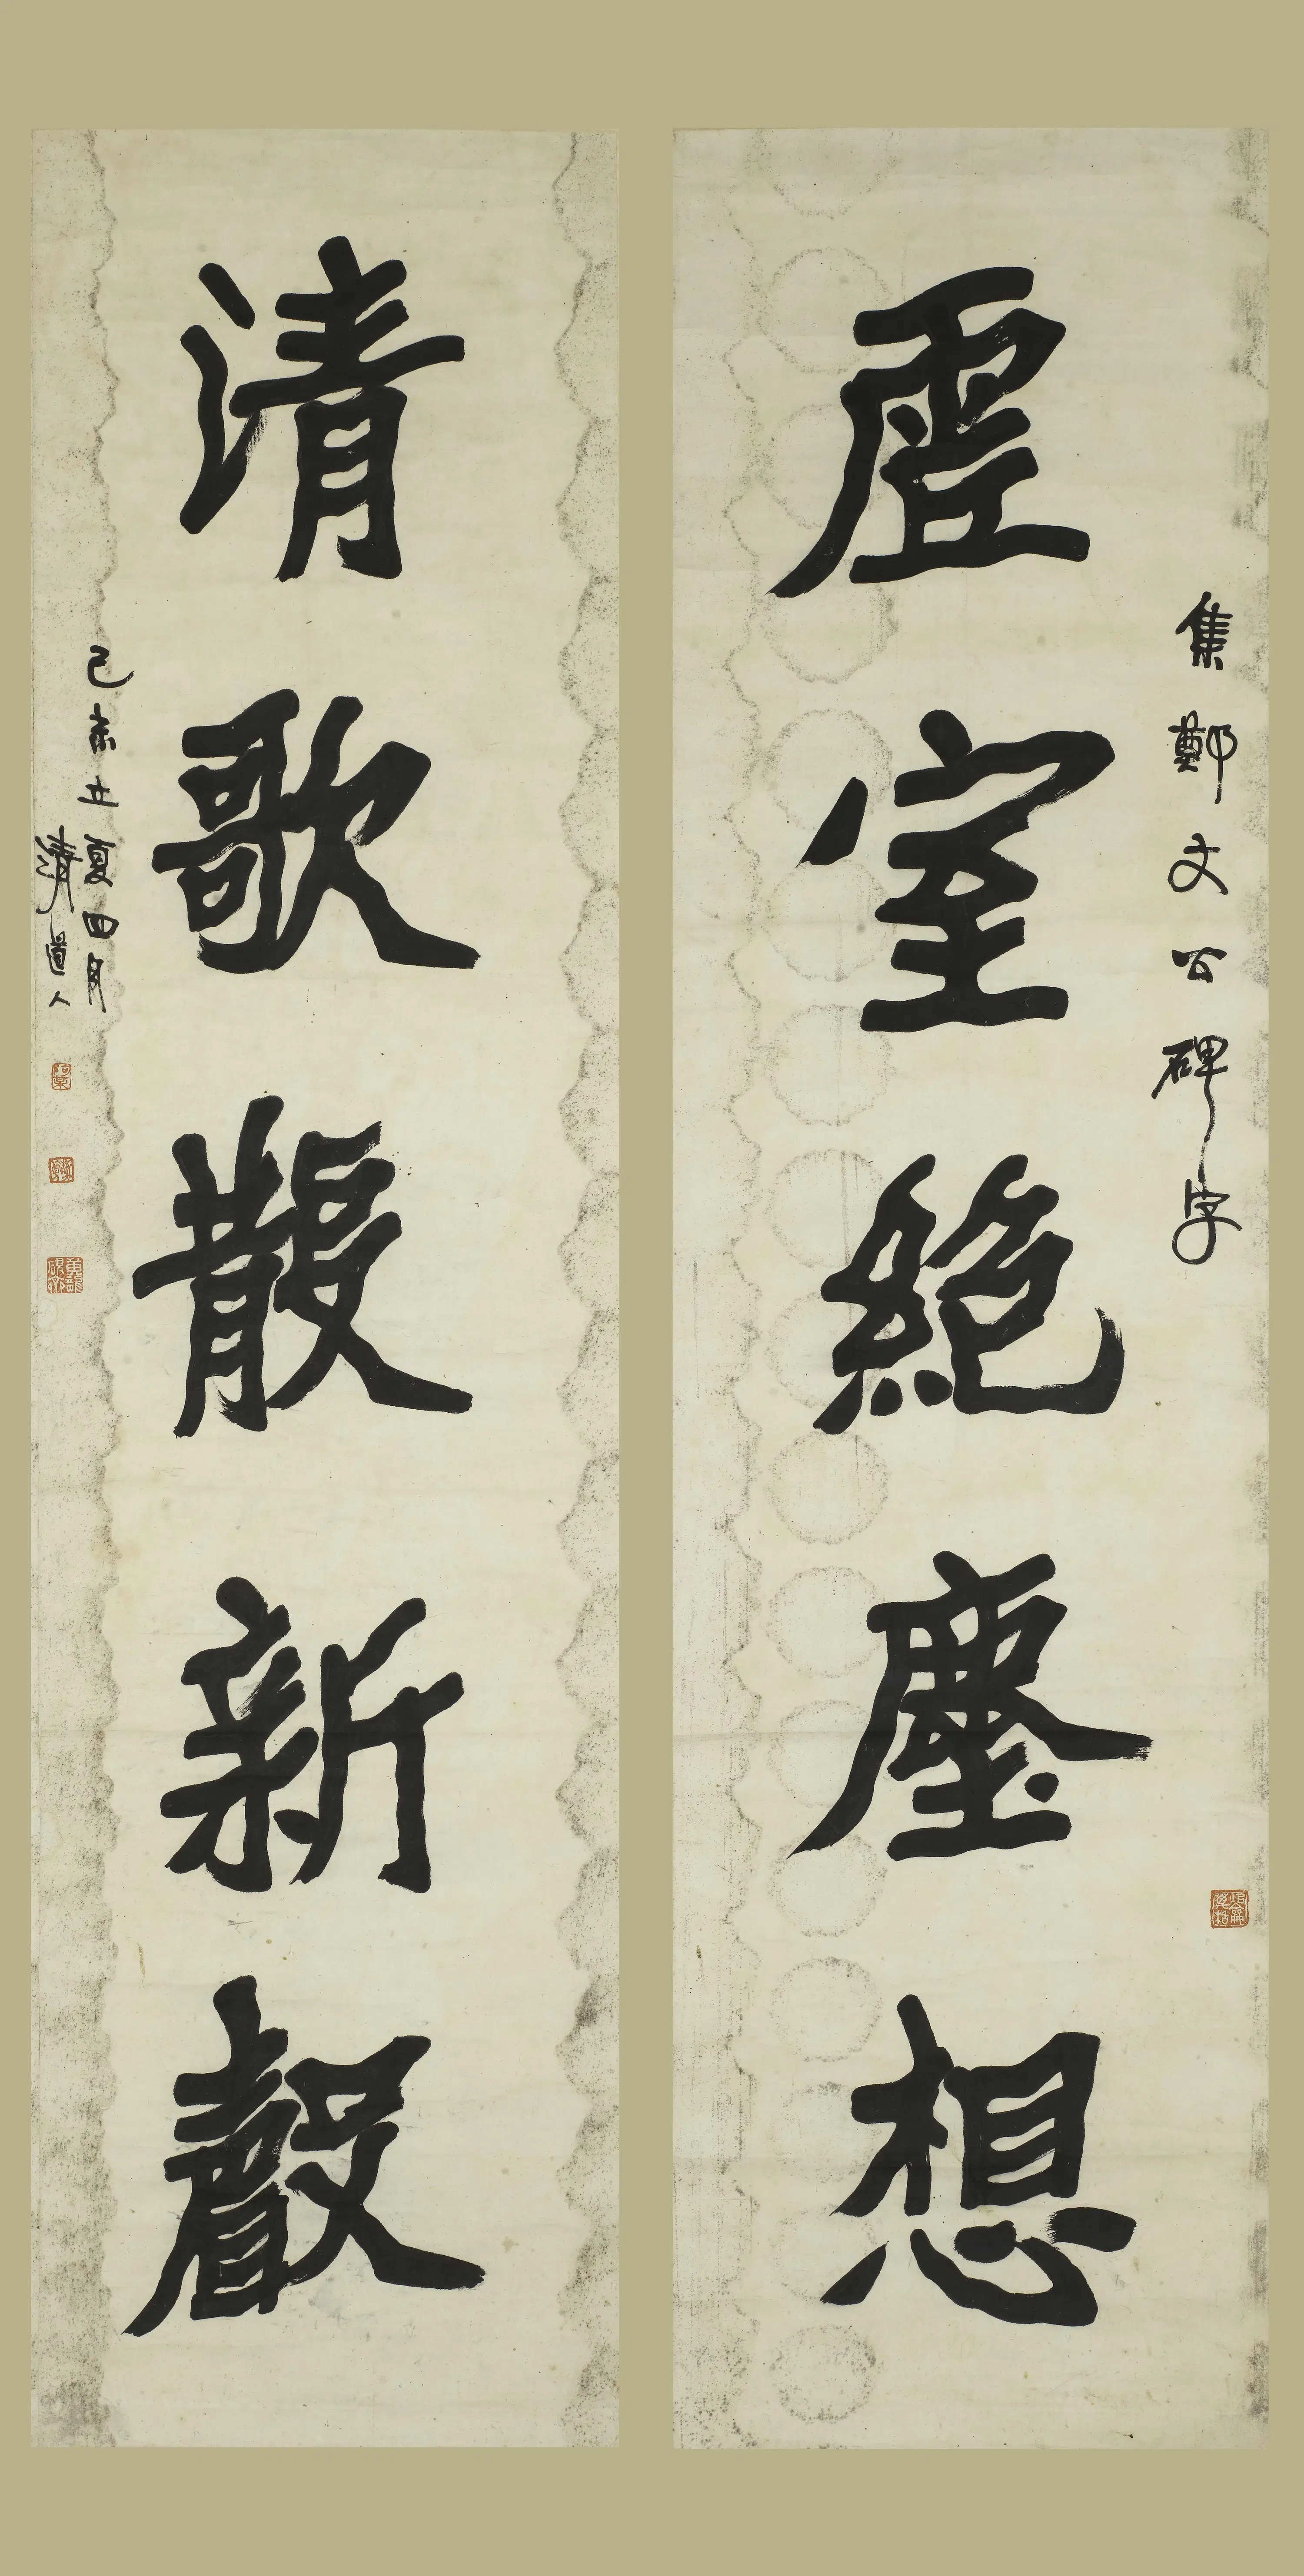 集鄭文公碑字
虛室絕塵想
清歌散新聲
己未立夏四月
清道人
黃龍硯齋